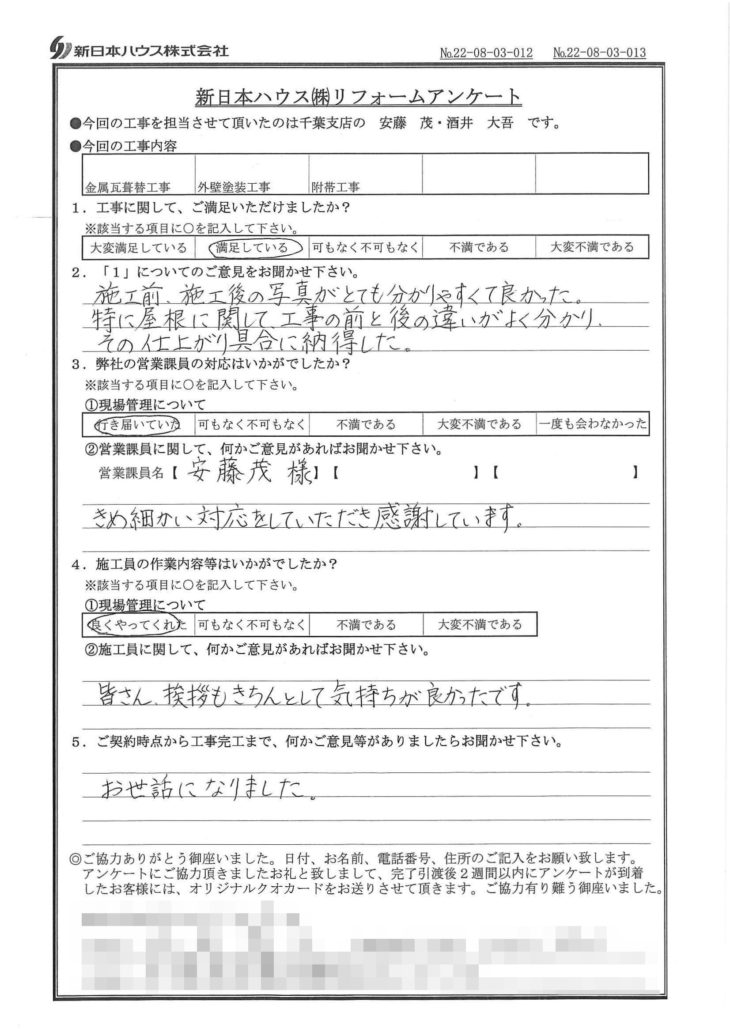 新日本ハウス株式会社
№22-08-03-012 №22-08-03-013
新日本ハウス㈱リフォームアンケート
●今回の工事を担当させて頂いたのは千葉支店の 安藤 茂・酒井 大吾 です。
●今回の工事内容
金属瓦葺替工事 外壁塗装工事 附帯工事
1．工事に関して、ご満足いただけましたか？
※該当する項目に○を記入して下さい。
大変満足している 満足している 可もなく不可もなく 不満である 大変不満である
2．「1」についてのご意見をお聞かせ下さい。
施工前、施工後の写真がとても分かりやすくて良かった。
特に屋根に関して、工事の前と後の違いがよく分かり、
その仕上がり具合に納得した。
3．弊社の営業課員の対応はいかがでしたか？
※該当する項目に○を記入して下さい。
①現場管理について
行き届いていた 可もなく不可もなく 不満である 大変不満である 一度も会わなかった
②営業課員に関して、何かご意見があればお聞かせ下さい。
営業課員名【 安藤茂 様】【 】【 】
きめ細かい対応をしていただき感謝しています。
4．施工員の作業内容等はいかがでしたか？
※該当する項目に○を記入して下さい。
①現場管理について
良くやってくれた 可もなく不可もなく 不満である 大変不満である
②施工員に関して、何かご意見があればお聞かせ下さい。
皆さん、挨拶もきちんとして気持ちが良かったです。
5．ご契約時点から工事完工まで、何かご意見等がありましたらお聞かせ下さい。
お世話になりました。
◎ご協力ありがとう御座いました。日付、お名前、電話番号、住所のご記入をお願い致します。
アンケートにご協力頂きましたお礼と致しまして、完了引渡後2週間以内にアンケートが到着
したお客様には、オリジナルクオカードをお送りさせて頂きます。ご協力有り難う御座いました。